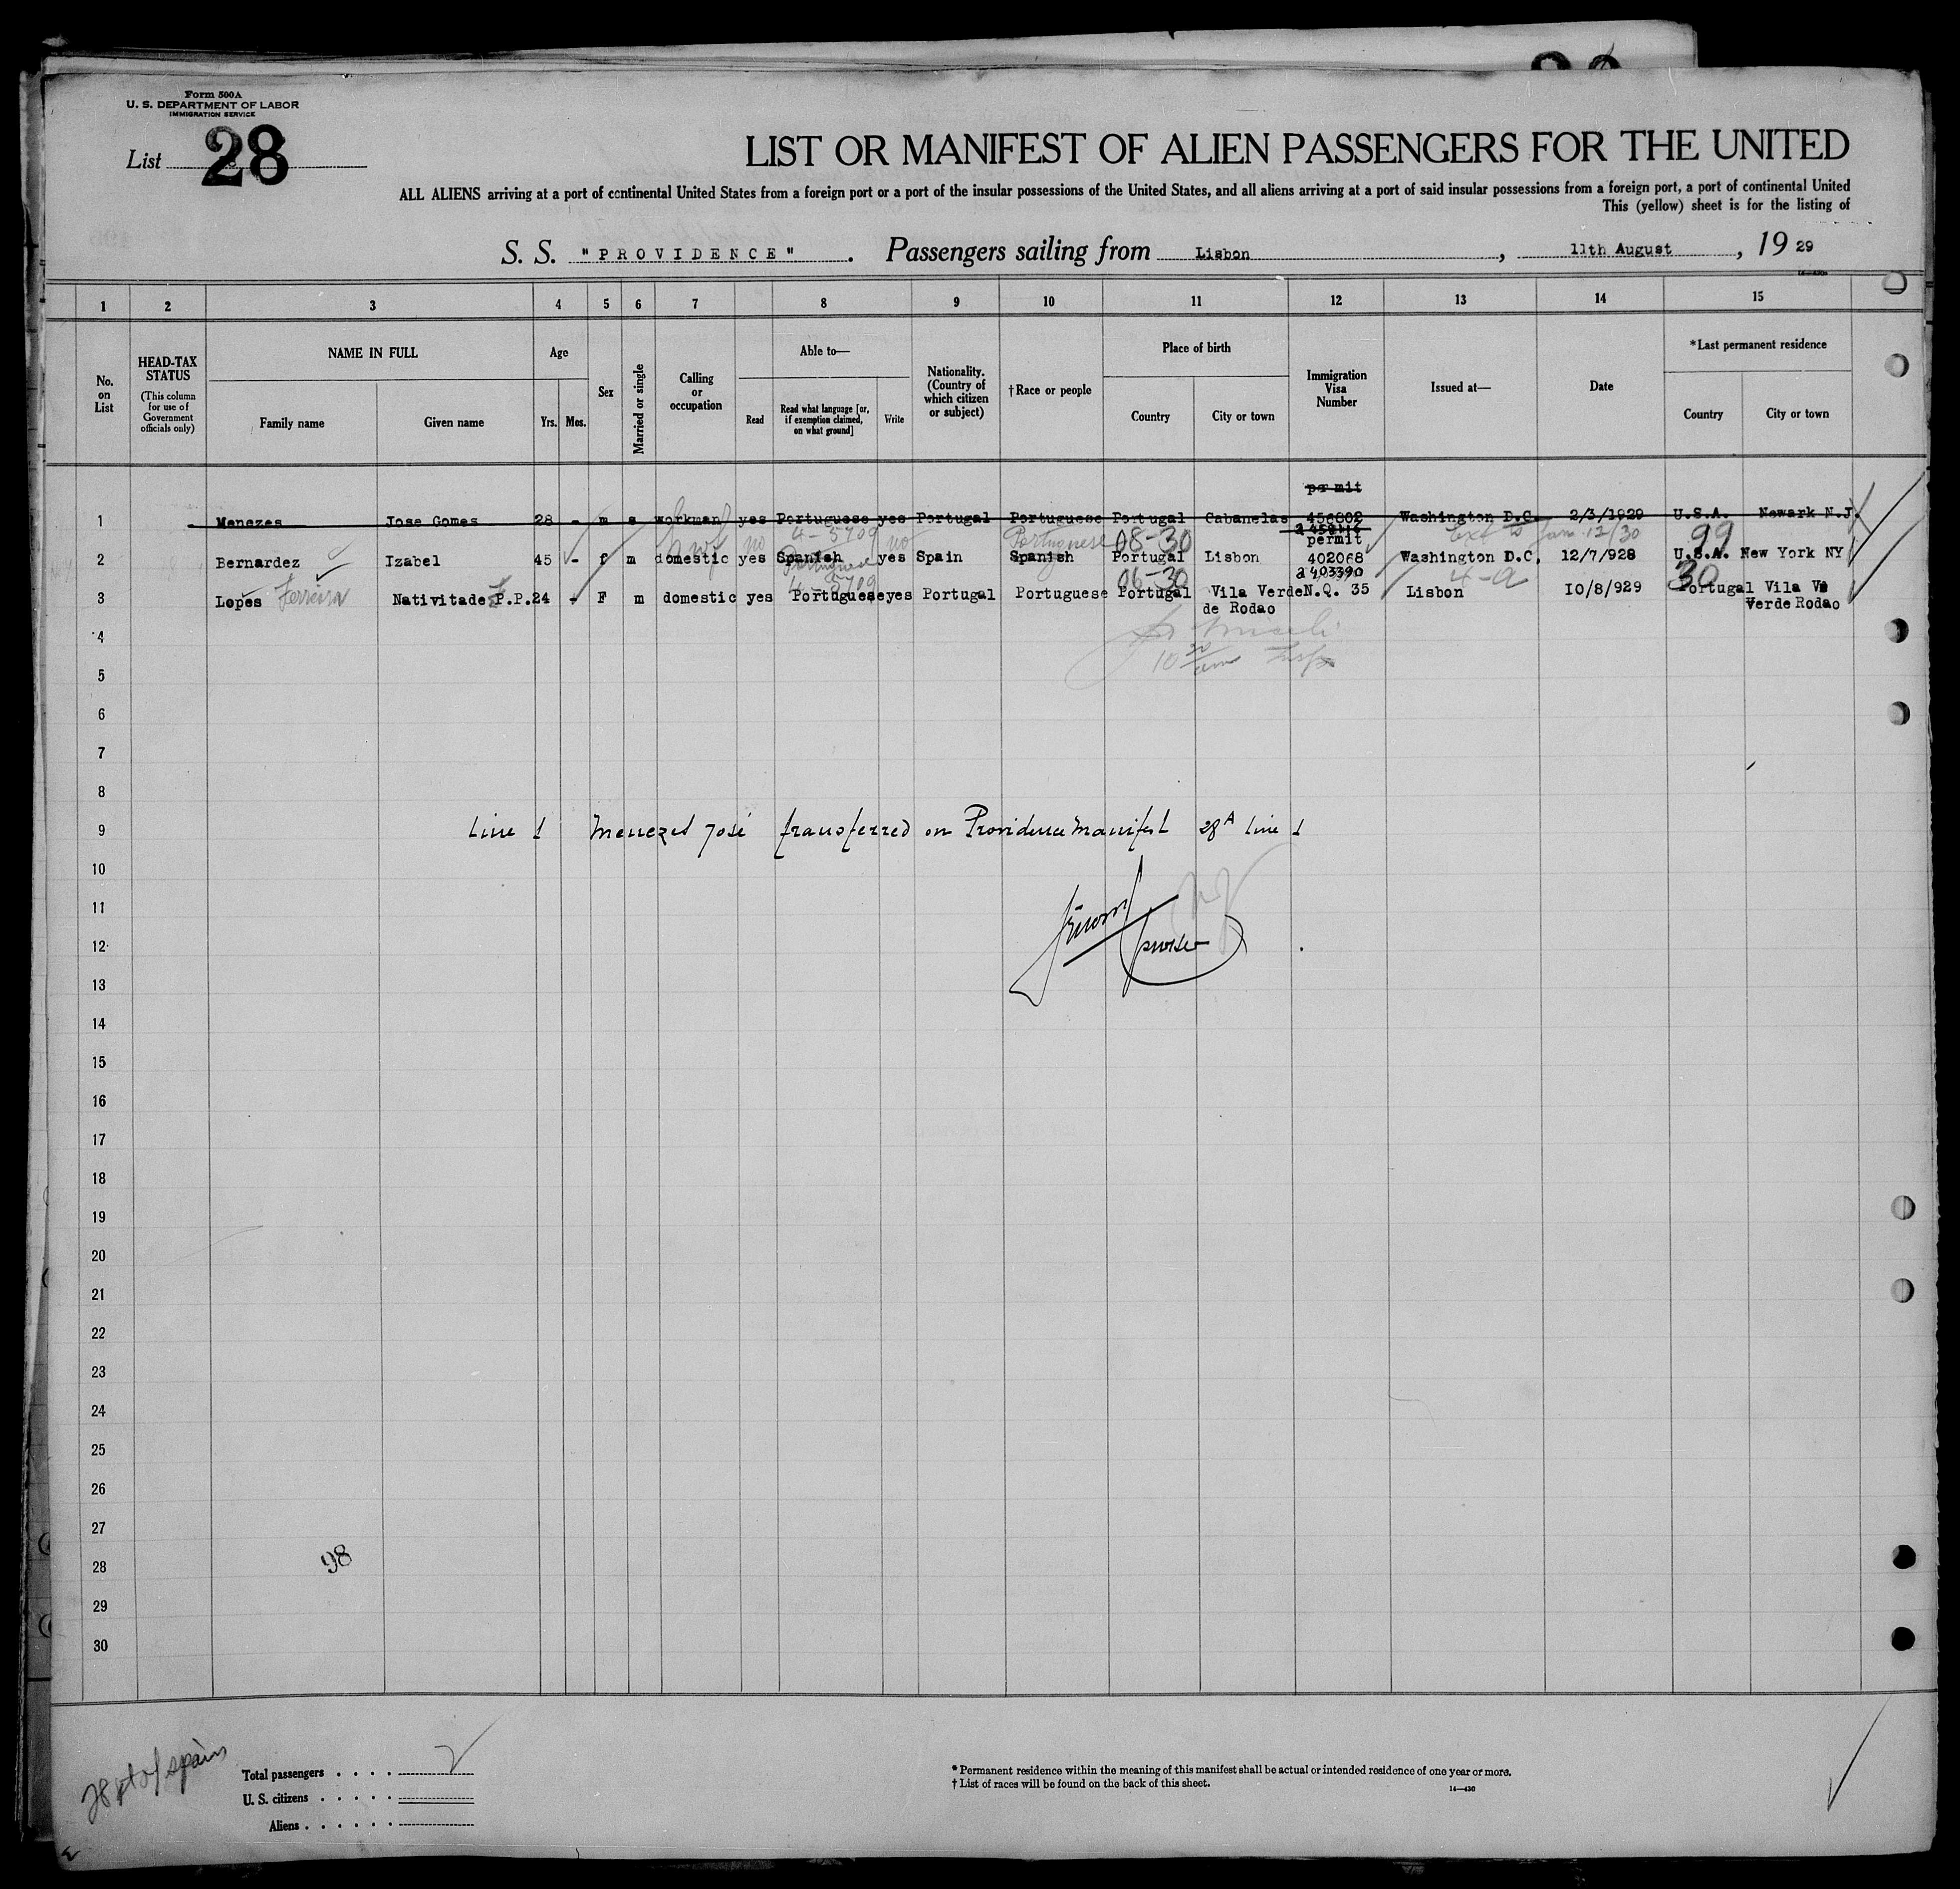 Form 500A
U. S. DEPARTMENT OF LABOR
IMMIGRATION SERVICE
List 28
LIST OR MANIFEST OF ALIEN PASSENGERS FOR THE UNITED
ALL ALIENS arriving at a port of continental United States from a foreign port or a port of the insular possessions of the United States, and all aliens arriving at a port of said insular possessions from a foreign port, a port of continental United
This (yellow) sheet is for the listing of
S. S. "PROVIDENCE". Passengers sailing from Lisbon, 11th August, 19 29
1 2 3 4 5 6 7 8 9 10 11 12 13 14 15
No. on List
HEAD-TAX STATUS
(This column for use of Government officials only)
NAME IN FULL
Family name Given name
Age
Yrs. Mos.
Sex
Married or single
Calling or occupation
Able to—
Read
Read what language [or, if exemption claimed, on what ground]
Write
Nationality. (Country of which citizen or subject)
†Race or people
Place of birth
Country City or town
Immigration Visa Number
Issued at—
Date
*Last permanent residence
Country City or town
permit
1 Menezes Jose Gomes 28 - m s workman yes Portuguese yes Portugal Portuguese Portugal Cabanelas 456802 Washington D.C. 2/3/1929 U.S.A. Newark N.J.
4-5709 no no Portuguese 08-30 permit Ext to Jan. 12/30 99
2 Bernardez Izabel 45 - f m domestic yes Spanish yes Spain Spanish Portugal Lisbon 402068 Washington D.C. 12/7/928 U.S.A. New York NY
Portuguese 4-5709 06-30 a 403390 4-a 30
3 Lopes Ferreira Nativitade F.P. 24 - F m domestic yes Portuguese yes Portugal Portuguese Portugal Vila Verde N.Q. 35 Lisbon 10/8/929 Portugal Vila
de Rodao Verde Rodao
4
5
6
7
8
9 Line 1 Menezes José transferred on Providence Manifest 28A line 1
10
11
12 purser
13
14
15
16
17
18
19
20
21
22
23
24
25
26
27
28 98
29
30
Total passengers . . . .
U. S. citizens . . . . .
Aliens . . . . . .
28 pt of spain
* Permanent residence within the meaning of this manifest shall be actual or intended residence of one year or more.
† List of races will be found on the back of this sheet.
14—430